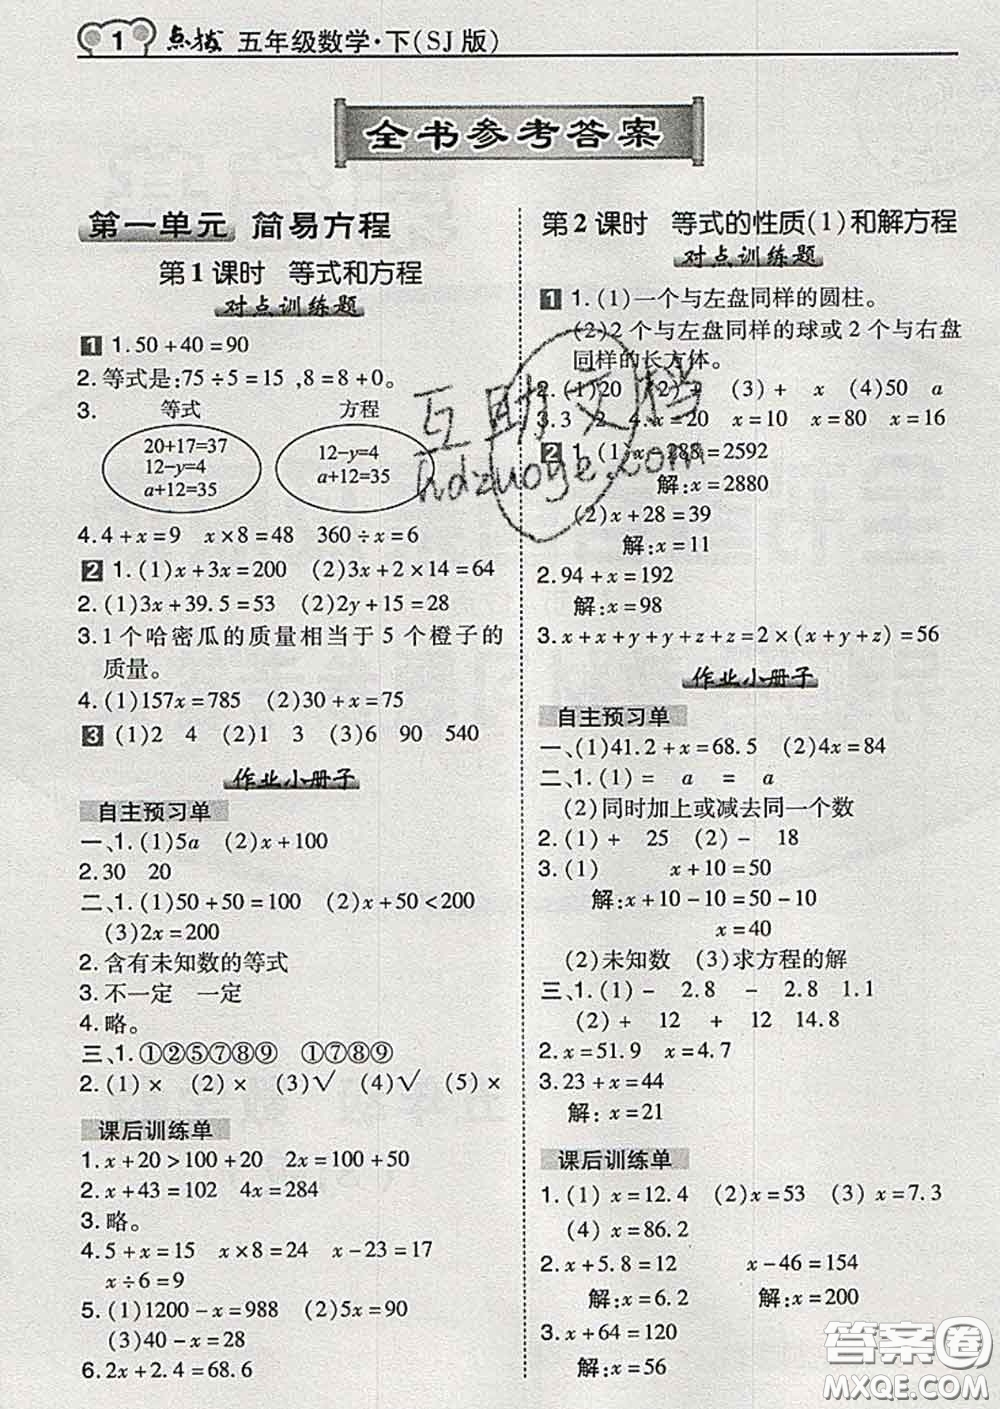 1 点拨 五年级数学·下(SJ版)
全书参考答案
第一单元 简易方程
第1课时 等式和方程
对点训练题
1 1.50+40=90
2.等式是:75÷5=15 ,8=8+0。
3. 等式 方程
20+17=37
12-y=4
a+12=35
12-y=4
a+12=35
4.4+x=9 x×8=48 360÷x=6
2 1.(1)x+3x=200 (2)3x+2×14=64
2.(1)3x+39.5=53 (2)2y+15=28
3.1个哈密瓜的质量相当于5个橙子的
质量。
4.(1)157x=785 (2)30+x=75
3 (1)2 4 (2)1 3 (3)6 90 540
作业小册子
自主预习单
一、1.(1)5a (2)x+100
2.30 20
二、1.(1)50+50=100 (2)x+50<200
(3)2x=200
2.含有未知数的等式
3.不一定 一定
4.略。
三、1.①②⑤⑦⑧⑨ ①⑦⑧⑨
2.(1)× (2)× (3)√ (4)√ (5)×
课后训练单
1.x+20>100+20 2x=50+50
2.x+43=102 4x=284
3.略。
4.5+x=15 x×8=24 x-23=17
x÷6=9
5.(1)1200-x=988 (2)5x=90
(3)40-x=28
6.2x+2.4=68.6
第2课时 等式的性质(1)和解方程
对点训练题
1 1.(1)一个与左盘同样的圆柱。
(2)2个与左盘同样的球或2个与右盘
同样的长方体。
2.(1)20 (2)+ (3)+ x (4)50 a
3.3 2 4.x=20 x=10 x=80 x=16
2 1.(1)x-288=2592
解:x=2880
(2)x+28=39
解:x=11
2.94+x=192
解:x=98
3.x+x+y+y+z+z=2×(x+y+z)=56
作业小册子
自主预习单
一、(1)41.2+x=68.5 (2)4x=84
二、1.(1)= a = a
(2)同时加上或减去同一个数
2.(1)+ 25 (2)- 18
3.(1) x+10=50
解:x+10-10=50-10
x=40
(2)未知数 (3)求方程的解
三、1.(1)- 2.8 - 2.8 1.1
(2)+ 12 + 12 14.8
2.x=51.9 x=4.7
3.23+x=44
解:x=21
课后训练单
1.(1) x=12.4 (2)x=53 (3) x=7.3
(4) x=86.2
2.x+5.8=12 x-46=154
解:x=6.2 解:x=200
3.x+64=120
解:x=56
互助文档
hdzuoye.com
答案圈
MXQE.COM